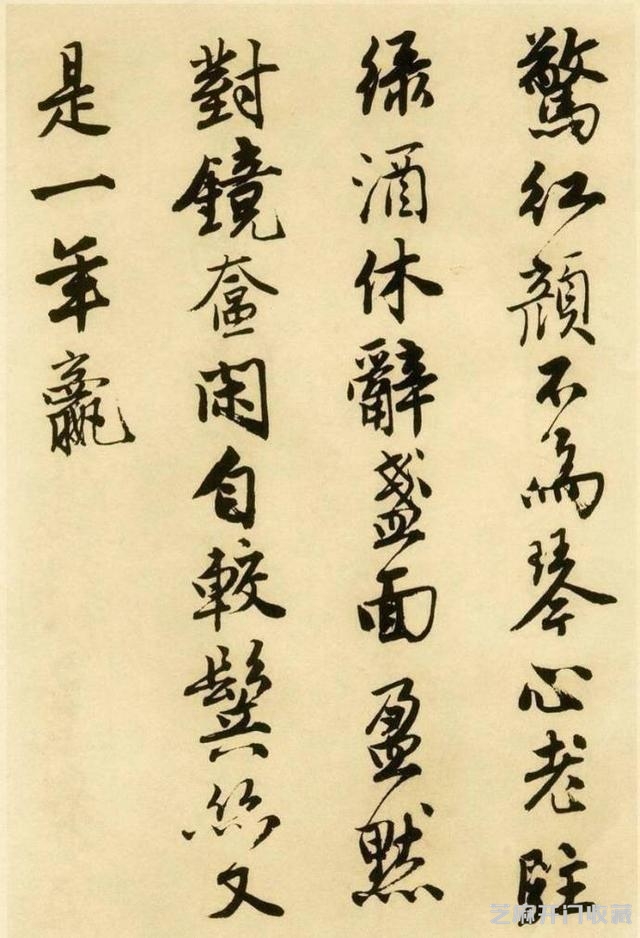 驚紅顏不為琴心老駐
緑酒休辭盞面盈默
對鏡奩閑自較鬢絲又
是一年贏
芝麻开门收藏